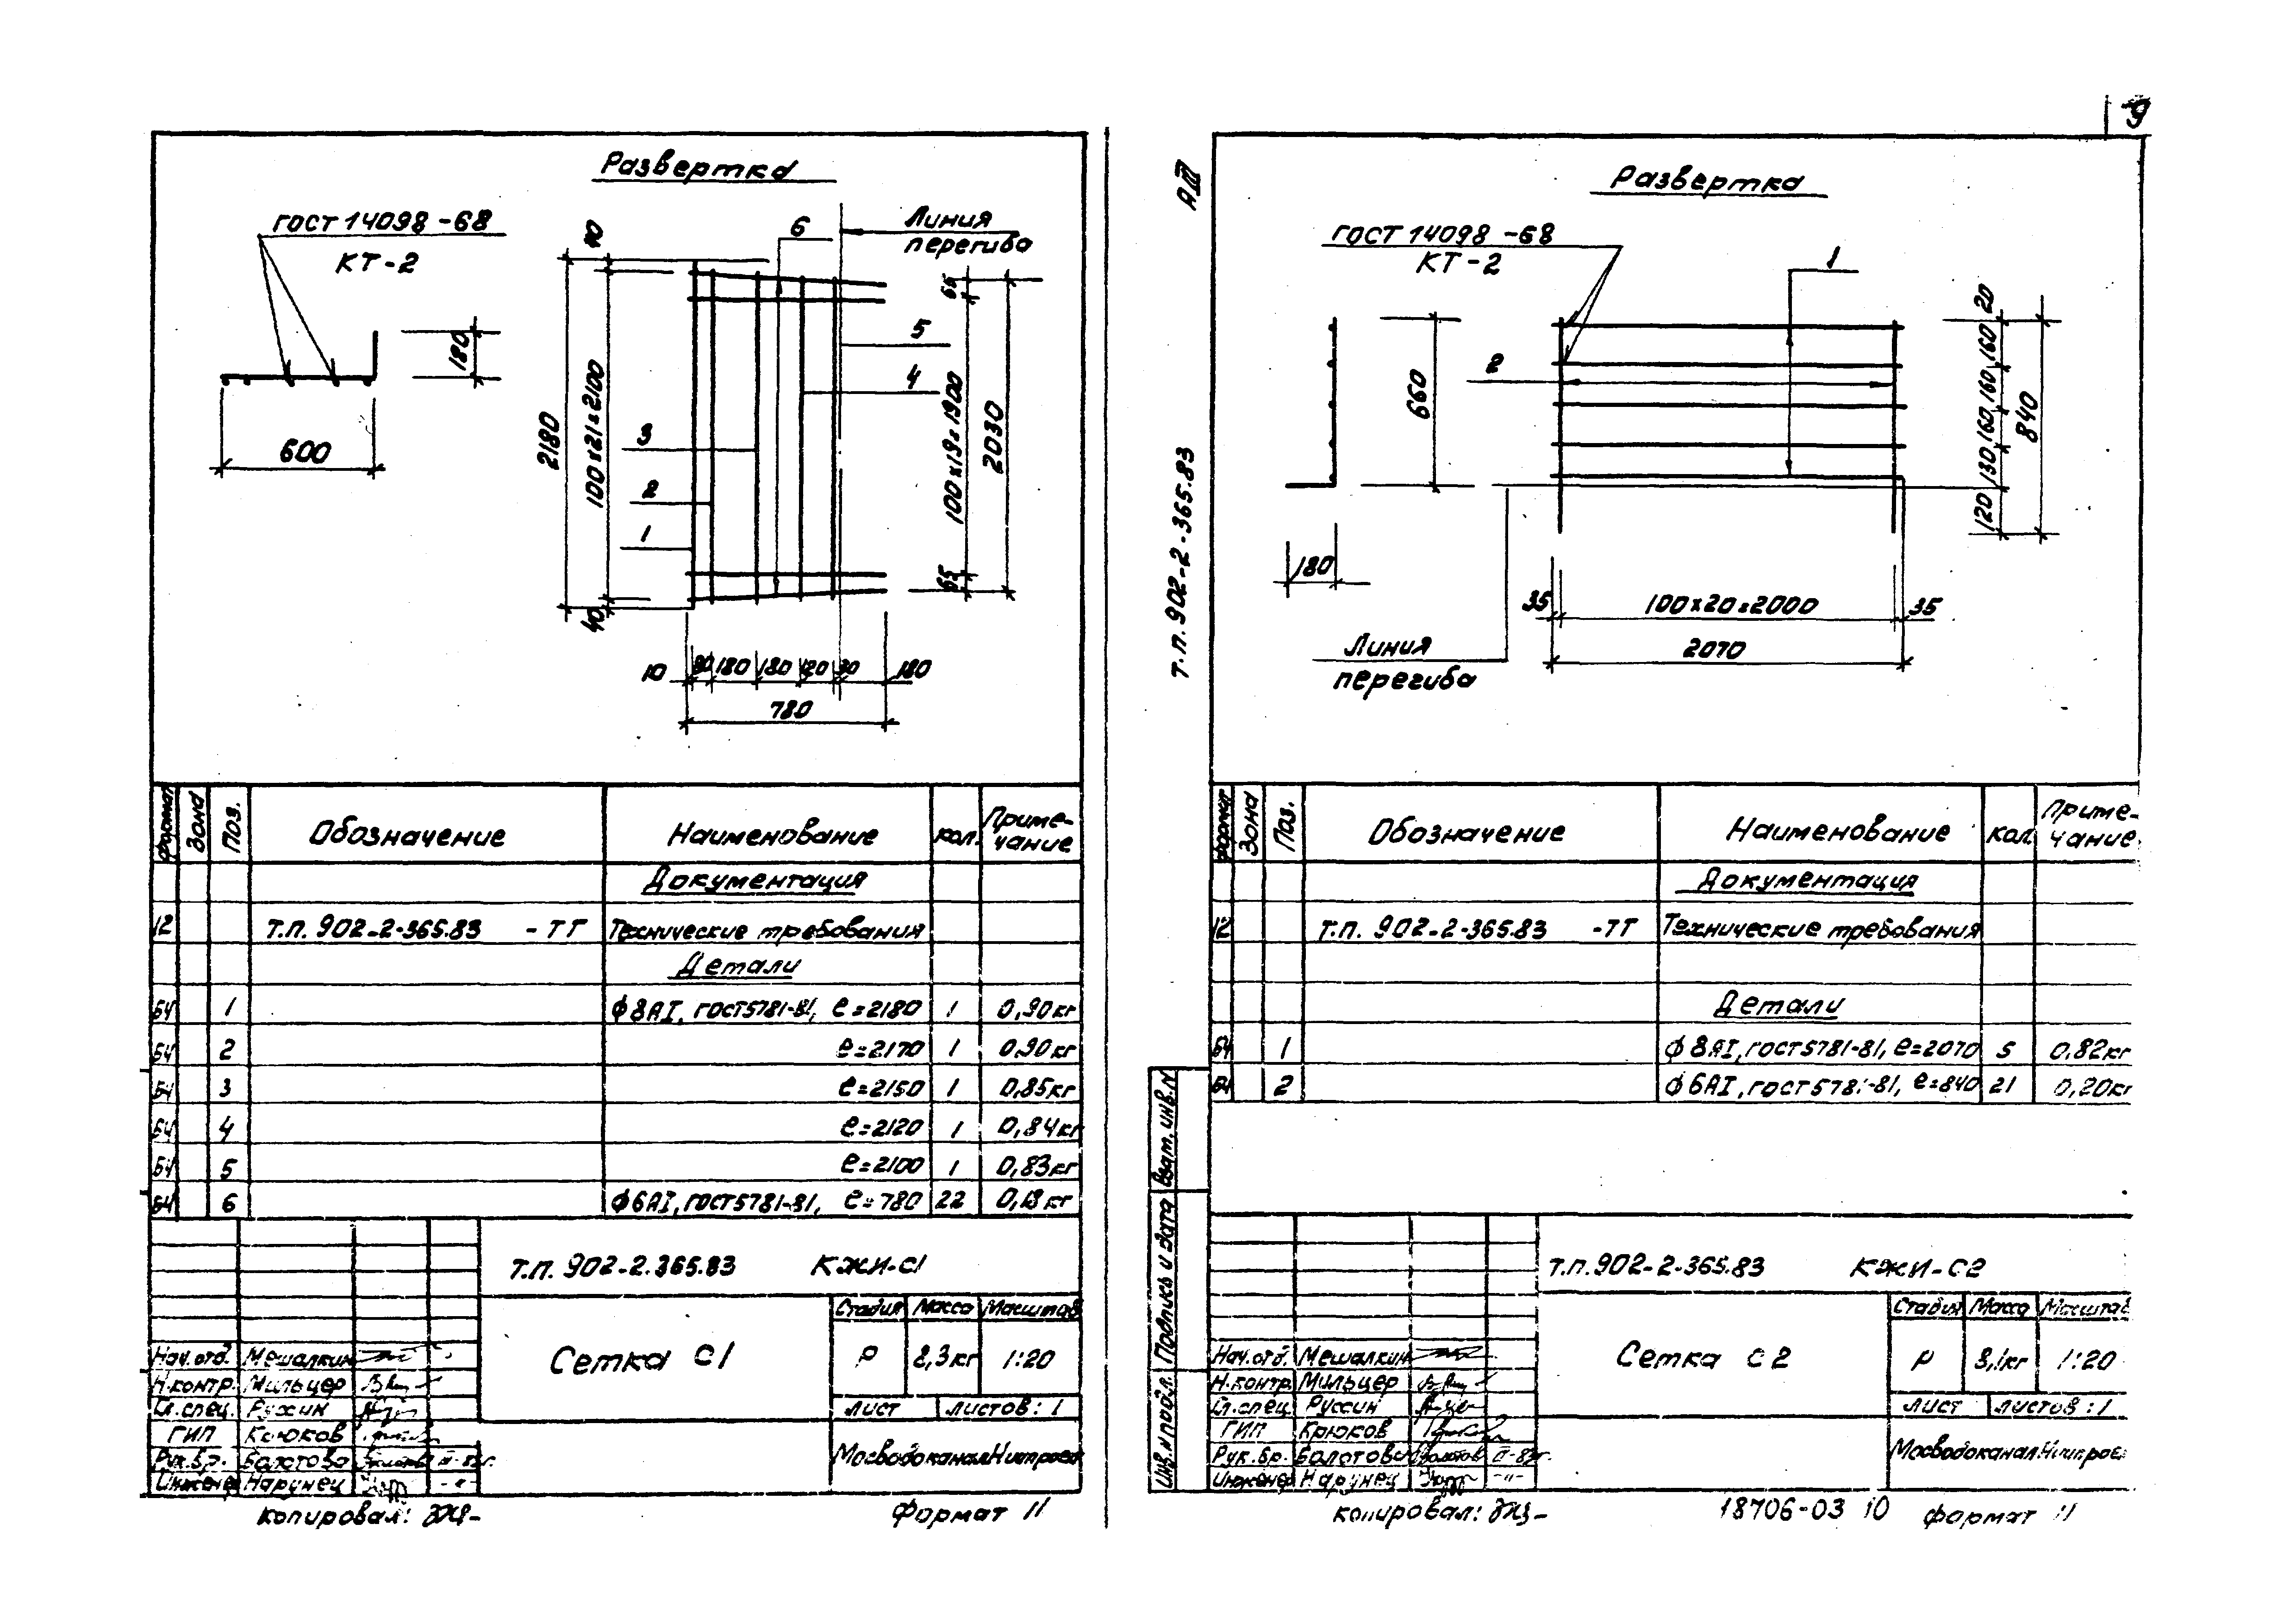 9
Развертка
ГОСТ 14098-68
КТ-2
180
600
6
Линия
перегиба
5
4
3
2
1
40
2180
100x21=2100
40
65
100x19=1900
2030
65
10
80
180
180
120
30
180
780
Формат
Зона
Поз.
Обозначение
Наименование
кол.
Приме-
чание
Документация
12 Т.п. 902-2-365.83 -ТТ Технические требования
Детали
Б4 1 ϕ8АI, ГОСТ5781-81, ℓ=2180 1 0,90кг
Б4 2 ℓ=2170 1 0,90кг
Б4 3 ℓ=2150 1 0,85кг
Б4 4 ℓ=2120 1 0,84кг
Б4 5 ℓ=2100 1 0,83кг
Б4 6 ϕ6АI, ГОСТ5781-81, ℓ=780 22 0,18кг
Т.п. 902-2.365.83 КЖИ-С1
Сетка С1
Стадия Масса Масштаб
Р 8,3кг 1:20
лист листов: 1
Нач.отд. Мешалкин
Н.контр. Мильцер
Гл.спец. Руссин
ГИП Крюков
Рук.бр. Болотова
Инженер Нарунец
МосводоканалНИИпроект
копировал:
Формат 11
АIII
Т.п. 902-2-365.83
Развертка
ГОСТ 14098-68
КТ-2
1
2
660
180
20
160
160
160
130
120
840
35
100x20=2000
35
2070
Линия
перегиба
Формат
Зона
Поз.
Обозначение
Наименование
кол.
Приме-
чание
Документация
12 Т.п. 902-2-365.83 -ТТ Технические требования
Детали
Б4 1 ϕ8АI, ГОСТ5781-81, ℓ=2070 5 0,82кг
Б4 2 ϕ6АI, ГОСТ5781-81, ℓ=840 21 0,20кг
Взам. инв.N
Подпись и дата
Инв.N подл.
Т.п. 902-2-365.83 КЖИ-С2
Сетка С2
Стадия Масса Масштаб
Р 8,1кг 1:20
лист листов: 1
Нач.отд. Мешалкин
Н.контр. Мильцер
Гл.спец. Руссин
ГИП Крюков
Рук.бр. Болотова
Инженер Нарунец
МосводоканалНИИпроек
копировал:
18706-03 10
Формат 11